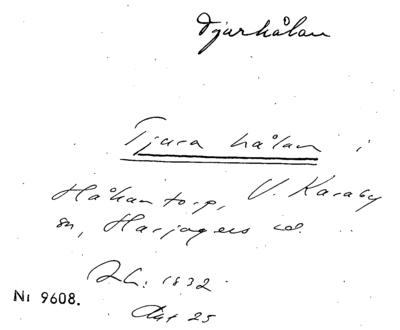 Djurhålan
Tjura hålan i
Håkantorp, V. Karaby
sn, Harjagers hd.
1832.
Nr 9608.
Akt 25